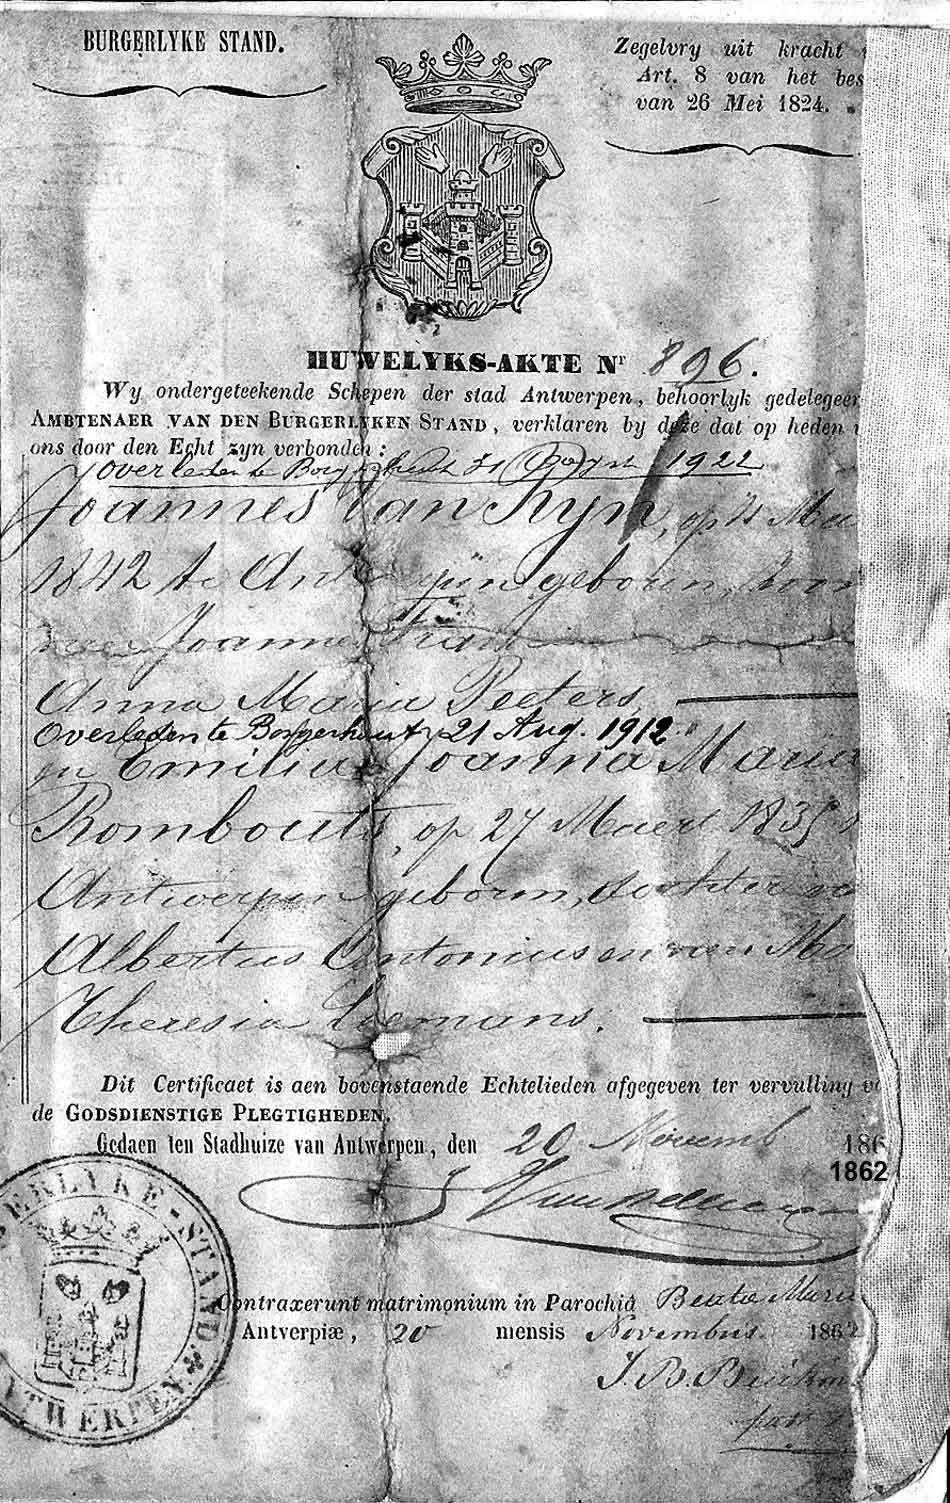 BURGERLYKE STAND.
Zegelvry uit kracht
Art. 8 van het bes
van 26 Mei 1824.
HUWELYKS-AKTE Nr 896.
Wy ondergeteekende Schepen der stad Antwerpen, behoorlyk gedelegeer
AMBTENAER VAN DEN BURGERLYKEN STAND, verklaren by deze dat op heden
ons door den Echt zyn verbonden :
overleden te 1922
Joannes Van Ryn, op
1842 te geboren,
Joannes
Anna Maria Peeters,
Overleden te Borgerhout 21 Aug. 1912
Emilia Joanna Maria
Rombouts, op 27 Maert 1835
Antwerpen geboren, dochter
Albertus Antonius en van Ma
Theresia
Dit Certificaet is aen bovenstaende Echtelieden afgegeven ter vervulling v
de GODSDIENSTIGE PLEGTIGHEDEN.
Gedaen ten Stadhuize van Antwerpen, den 20 Novemb 186
1862
ERLYKE-STAND.
TWERPEN
Contraxerunt matrimonium in Parochiâ Beatæ Mariæ
Antverpiæ, 20 mensis Novembris 1862
J. B.